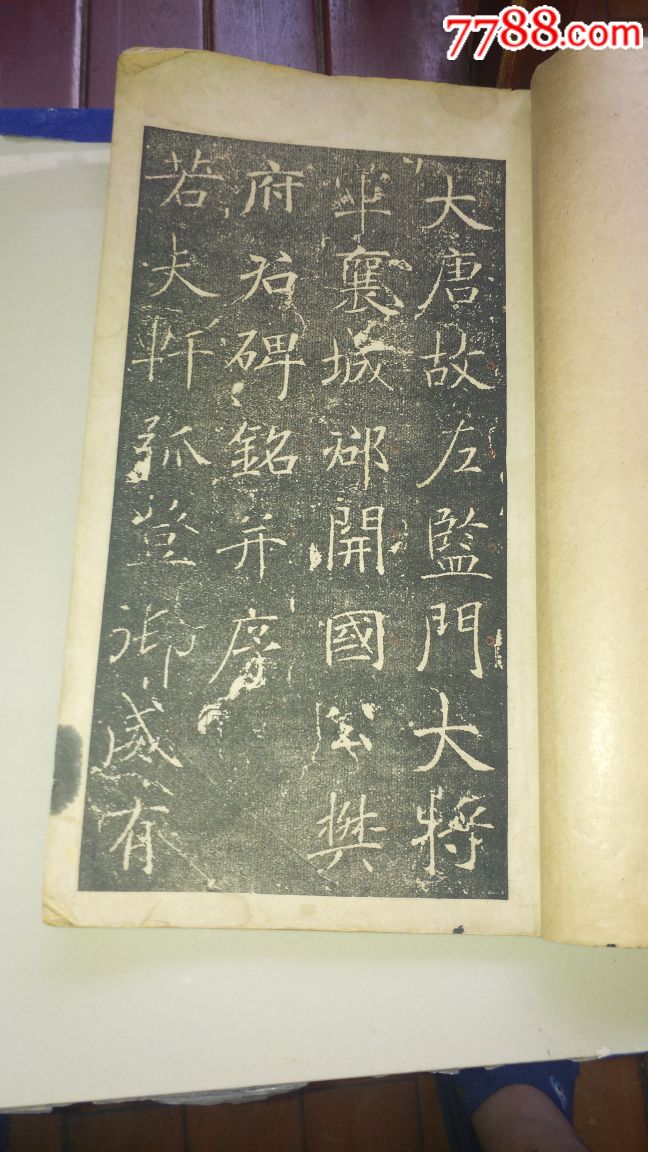 7788.com
大唐故左監門大將
軍襄城郡開國公樊
府君碑銘并序
若夫軒弧登御咸有